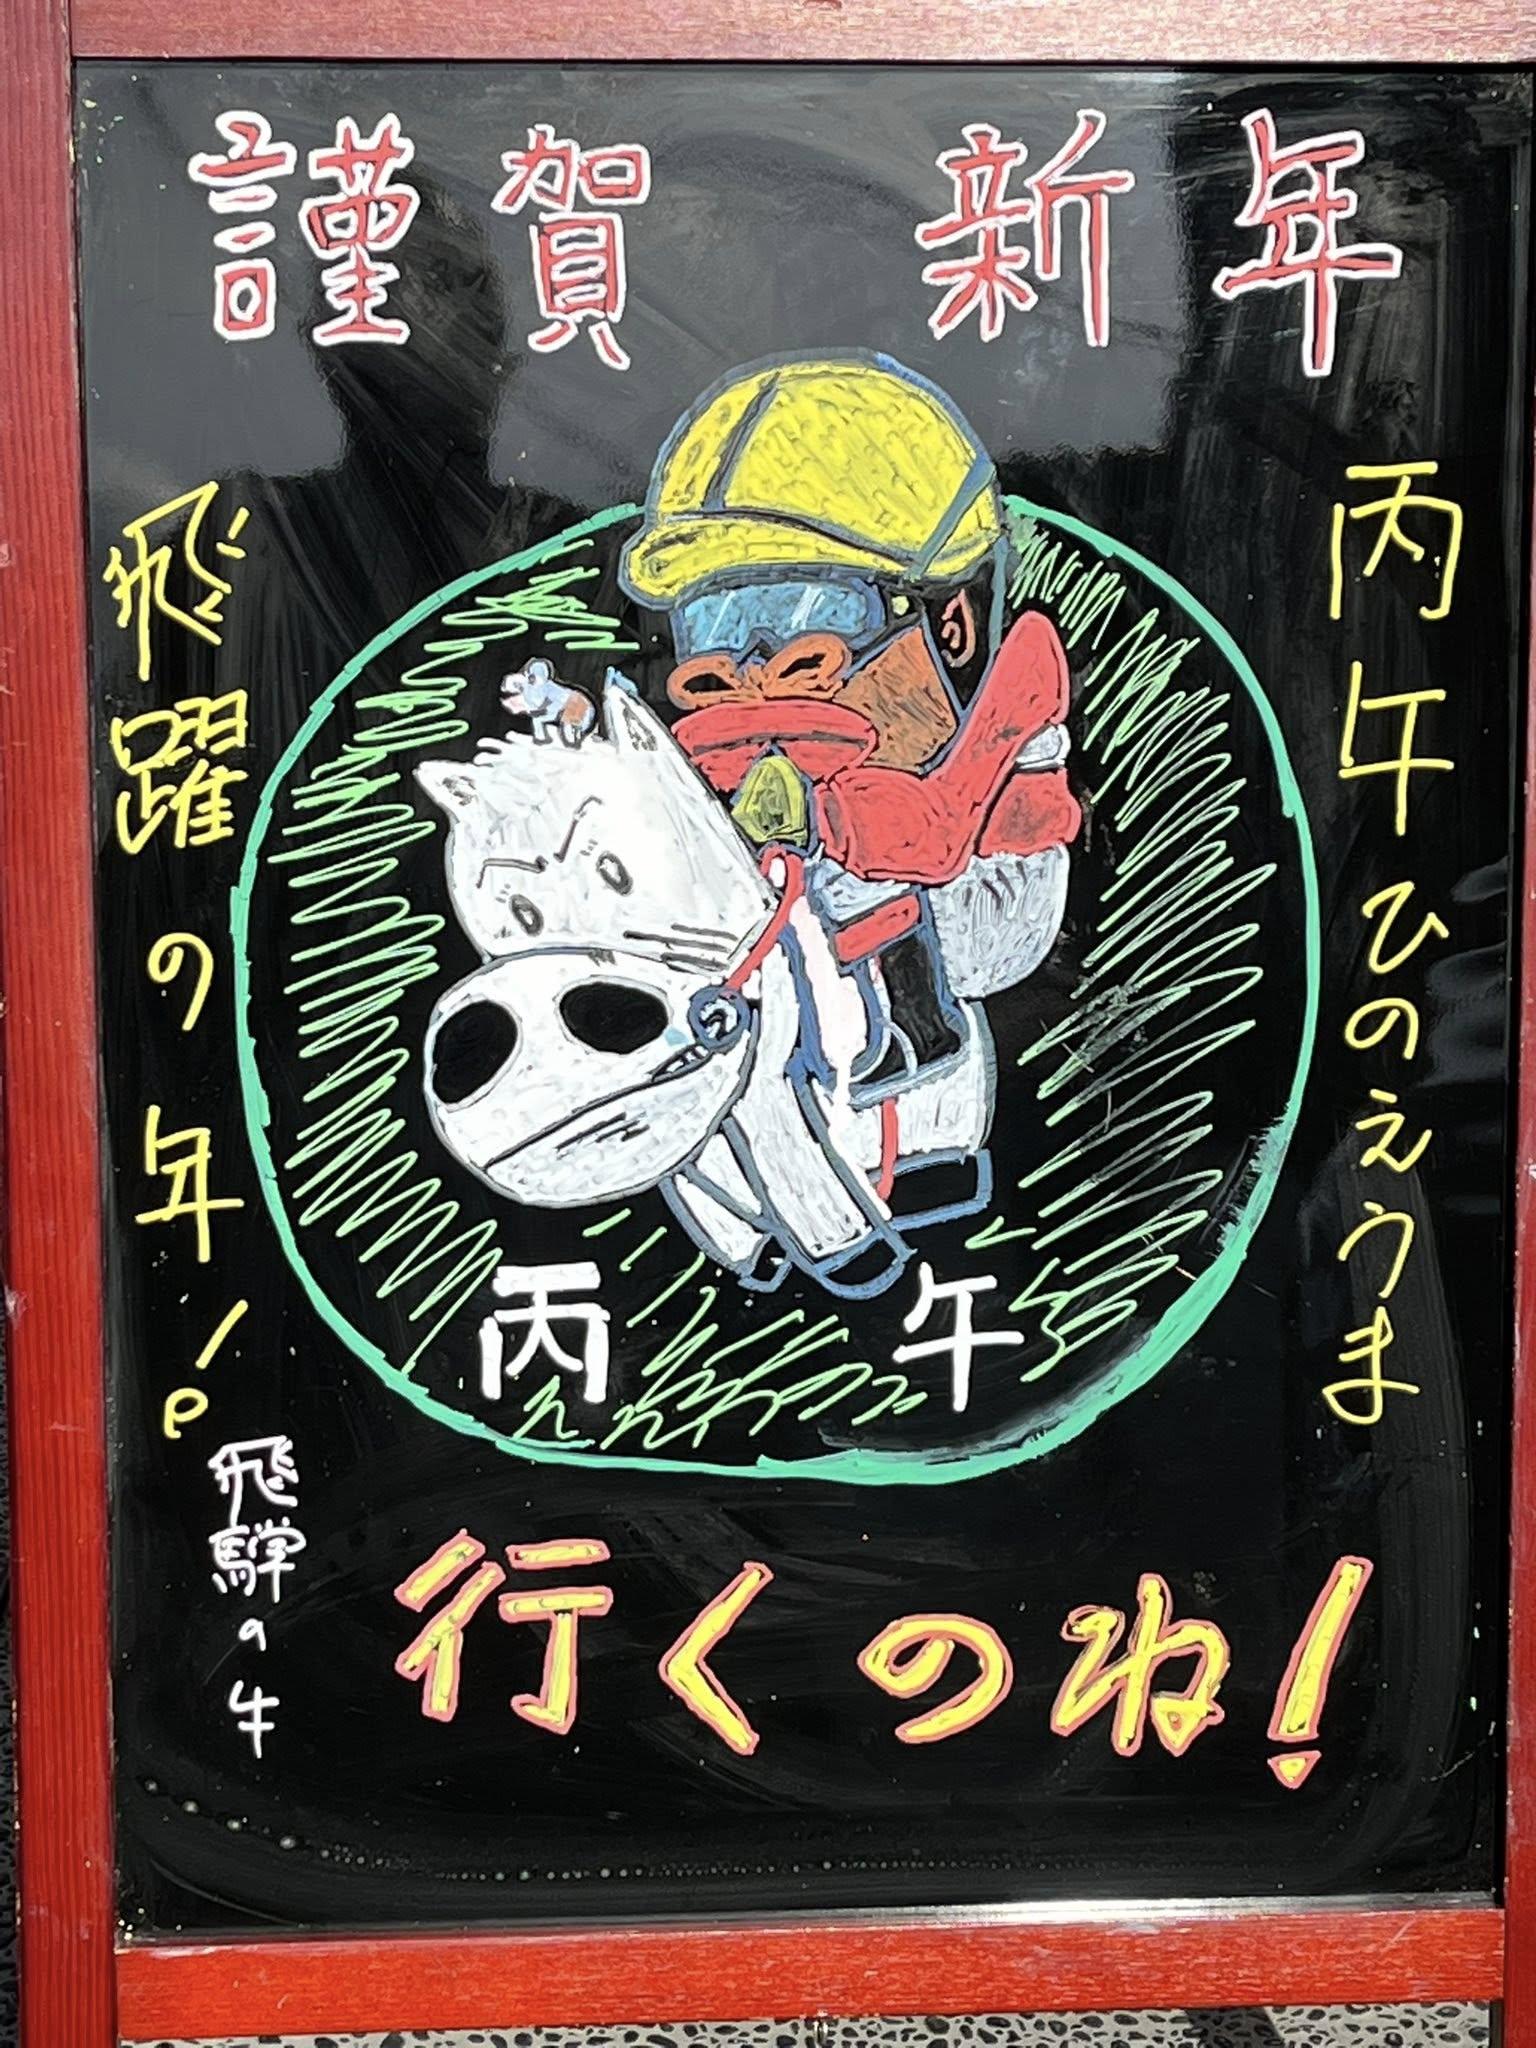 謹賀 新年
丙午 ひのえうま
丙午
飛躍の年!
飛騨の牛
行くのね!